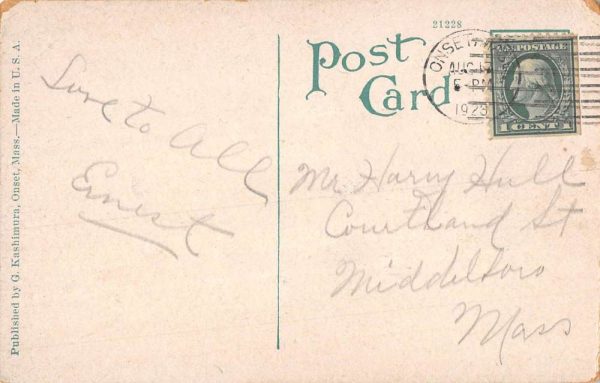 21228
Post
Card
ONSET
AUG 17
5-PM
1923
U.S. POSTAGE
1 CENT 1
Love to All
Ernest
Mr Harry Hull
Courtland St
Middleboro
Mass
Published by G. Kashimura, Onset, Mass.—Made in U. S. A.